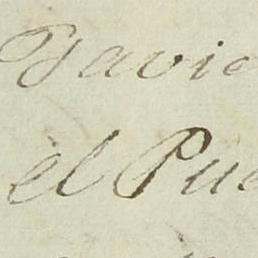 Javie
el Pue